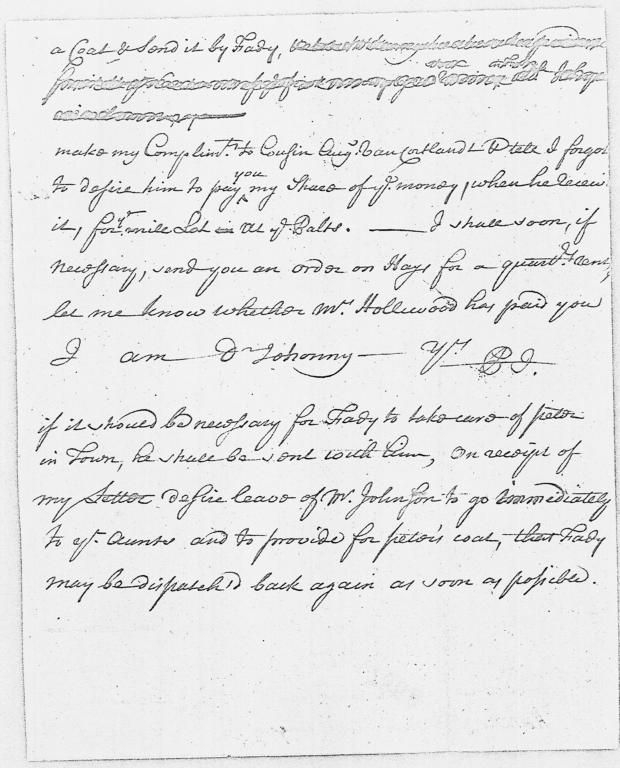 a Coat & Send it by Fady,
make my Complimts. to Cousin Aug. Van Cortlandt & tell I forgot
to desire him to pay you my Share of ye. money, when he
it, for ye. mile Lot at ye. Balts. — I shall soon, if
necessary, send you an order on Hays for a quartrs. rent,
let me know whether Mrs. Holliwood has paid you
I am Dr Johonny — Yrs. PJ.
if it should be necessary for Fady to take care of peter
in Town, he shall be sent with him, on receipt of
my Letter desire leave of Mr. Johnson to go immediately
to yr. Aunts and to provide for peter's coat, that Fady
may be dispatch'd back again as soon as possible.